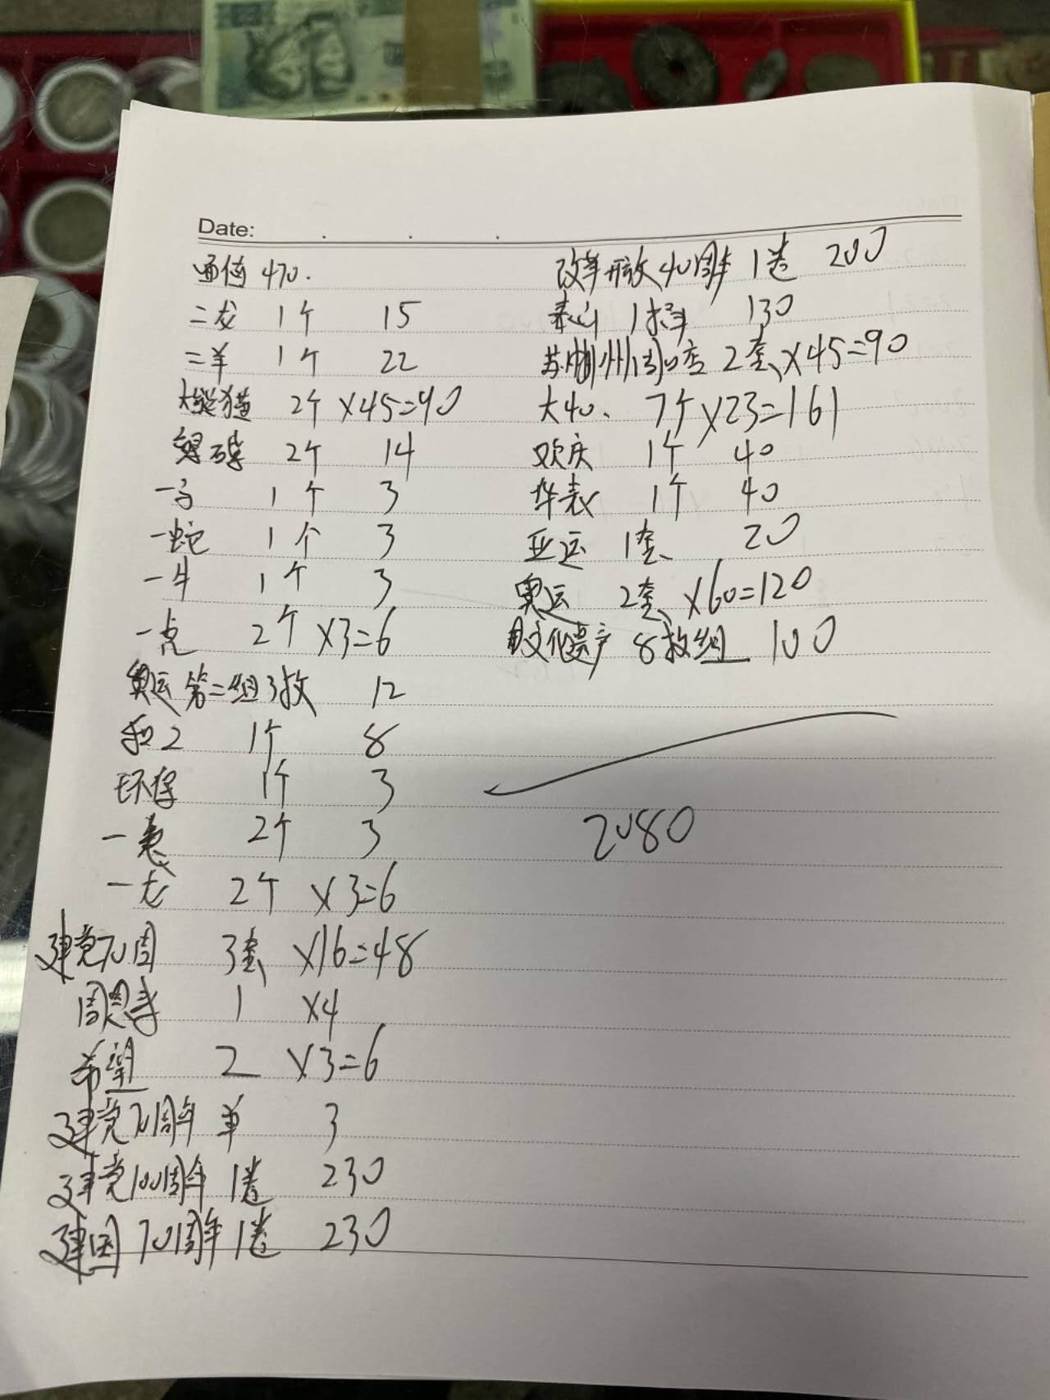 Date:
面值 470.
二龙 1个 15
二羊 1个 22
大熊猫 2个 ×45=90
2个 14
一马 1个 3
一蛇 1个 3
一牛 1个 3
一虎 2个 ×3=6
奥运第二组3枚 12
和2 1个 8
环保 1个 3
一 2个 3
一龙 2个 ×3=6
建党70周 3套 ×16=48
周恩来 1 ×4
希望 2 ×3=6
建党70周年 单 3
建党100周年 1卷 230
建国70周年 1卷 230
改革开放40周年 1卷 200
泰山 1 130
苏州 2套×45=90
大40、 7个×23=161
欢庆 1个 40
华表 1个 40
亚运 1套 20
奥运 2套 ×60=120
文化遗产 8枚组 100
2080